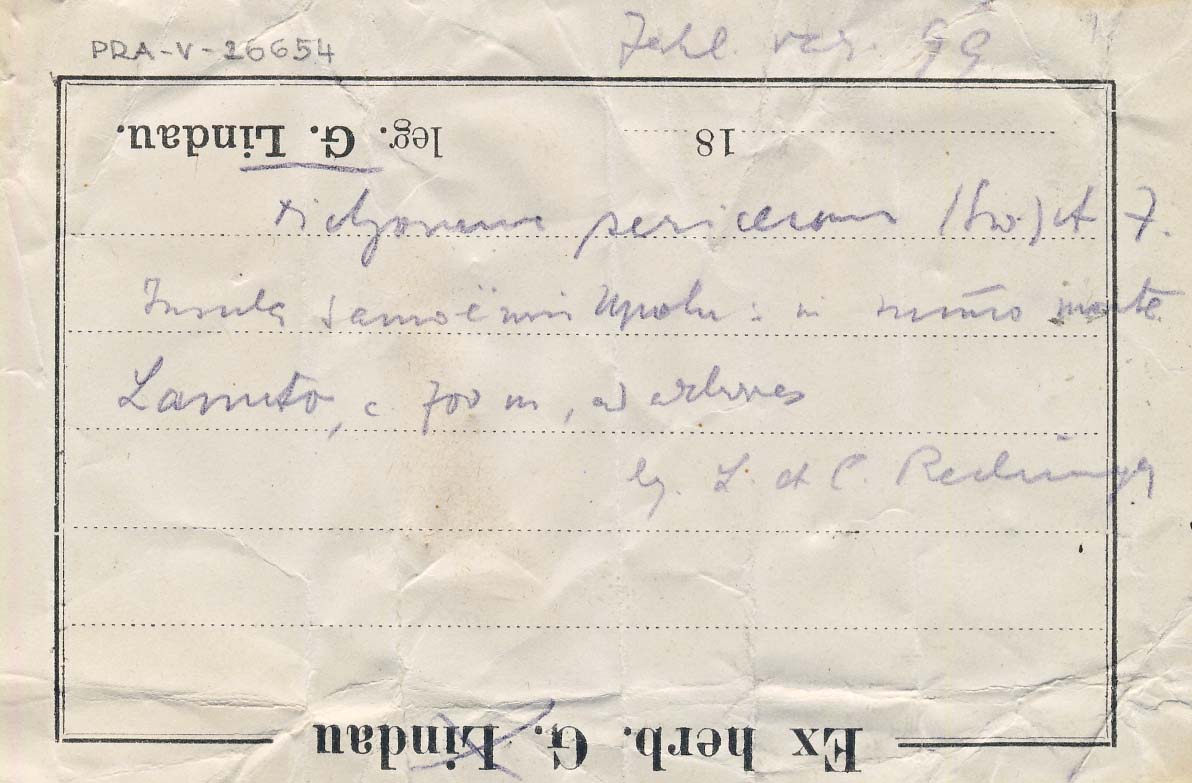 PRA-V-26654
Zahl. var. 99
leg. G. Lindau.
18
Dictyonema sericeum (Sw.)
Insula samoënsis Upolu: in monte
Lanuto, c 700 m, ad arbores
lg. L. et C. Rechinger
Ex herb. G. Lindau